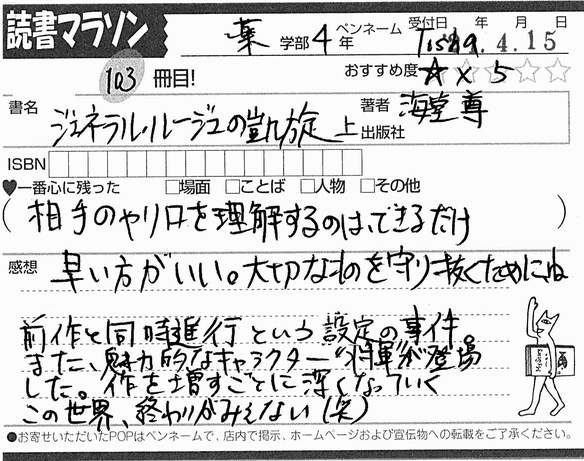 読書マラソン
薬 学部 4 年 ペンネーム 受付日 年 月 日
4.15
103 冊目! おすすめ度 ☆×5
書名 ジェネラル・ルージュの凱旋 上 著者 海堂 尊
出版社
ISBN
♥一番心に残った □場面 □ことば □人物 □その他
(相手のやり口を理解するのは、できるだけ)
感想 早い方がいい。大切なものを守り抜くためにね
前作と同時進行という設定の事件。
また、魅力的なキャラクター“将軍”が登場
した。作を増すごとに深くなっていく
この世界、終わりがみえない(笑)
●お寄せいただいたPOPはペンネームで、店内で掲示、ホームページおよび宣伝物への転載をご了承ください。